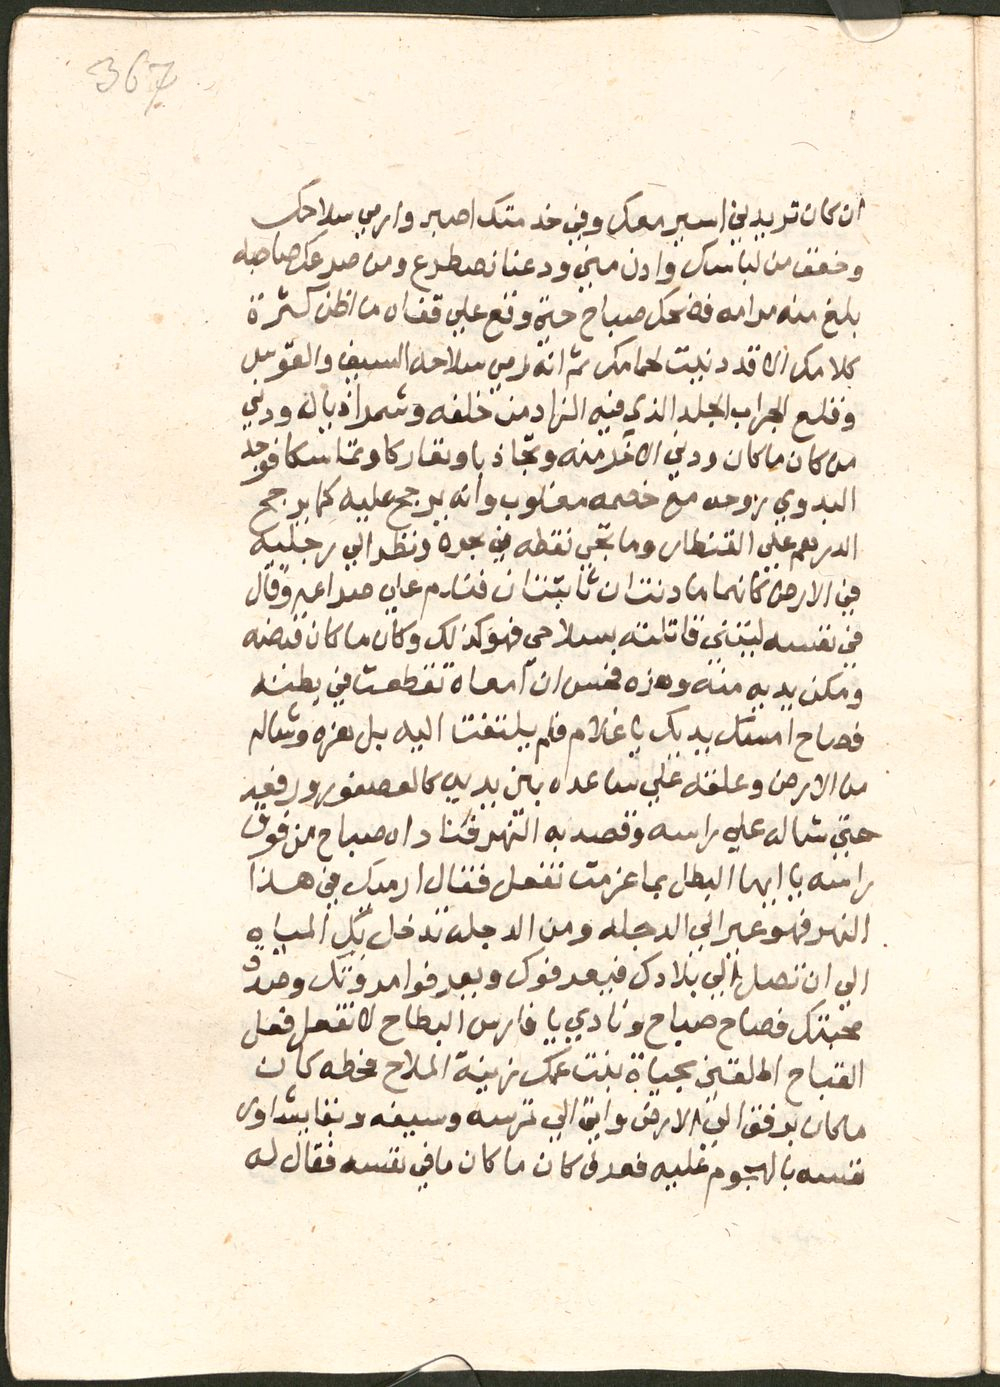 367
ان كان تريدني اسير معك وفي خدمتك اصير وارمي سلاحك
وخفف من لباسك وادن مني ودعنا نصطرع ومن صرعك صاحبه
بلغ منه مرامه فضحك صباح حتي وقع علي قفاه ما اظن كثرة
كلامك الا قد دنيت لحمامك ثم انه رمي سلاحه السيف والقوس
وقلع الجراب الجلد الذي فيه الزاد من خلفه وشمر اذياله ودني
من كان ماكان ودني الاخر منه وتجاذبا وتعاركا وتماسكا فوجد
البدوي روحه مع خصمه مغلوب وانه يرجح عليه كما يرجح
الدرهم علي القنطار وما تجي نقطه في بحره ونظر الي رجليه
في الارض كانهما مادنتان ثابتتان فندم علي صراعه وقال
في نفسه ليتني قاتلته بسلاحي فهو كذلك وكان ماكان قبضه
ومكن يديه منه وهزه فحس ان امعاه تقطعت في بطنه
فصاح امسك يديك يا غلام فلم يلتفت اليه بل هزه وشاله
من الارض وعلقه علي ساعده بين يديه كالعصفور ورفعه
حتي شاله علي راسه وقصد به النهر فناداه صباح من فوق
راسه يا ايها البطل بما عزمت تفعل فقال ارميك في هذا
النهر فهو عبر الي الدجله ومن الدجله تدخل بك المياه
الي ان تصل الي بلادك فيعرفوك ويعرفوا مروتك وصدق
محبتك فصاح صباح ونادي يا فارس البطاح لا تفعل فعل
القباح اطلقني بحياة بنت عمك زينة الملاح فحطه كان
ماكان برفق الي الارض واتي الي ترسه وسيفه وبقا يشاور
نفسه بالهجوم عليه فعرف كان ماكان ما في نفسه فقال له